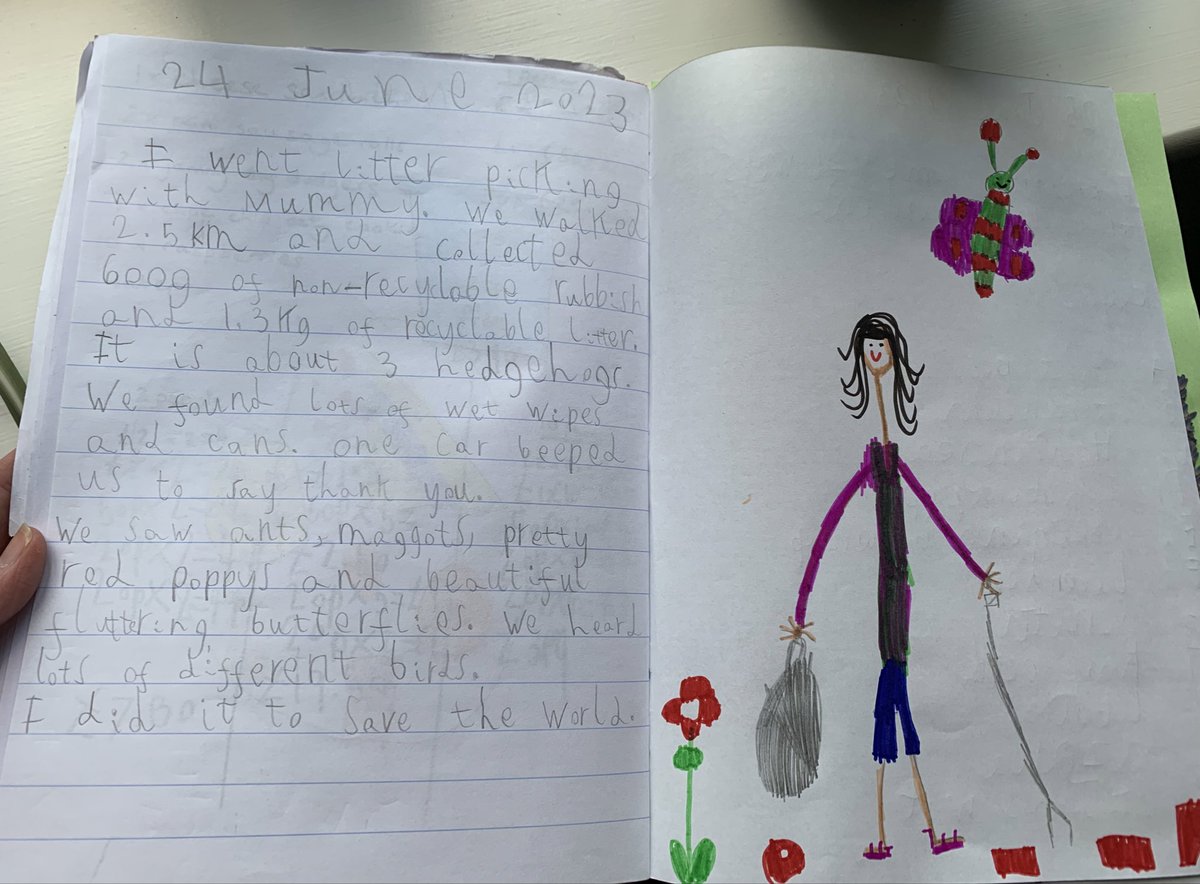 24 June 2023
I went litter picking
with Mummy. We walked
2.5km and collected
600g of non-recylable rubbish
and 1.3Kg of recyclable litter.
It is about 3 hedgehogs.
We found lots of wet wipes
and cans. one car beeped
us to say thank you.
We saw ants, maggots, pretty
red poppys and beautiful
fluttering butterflies. We heard
lots of different birds.
I did it to save the world.